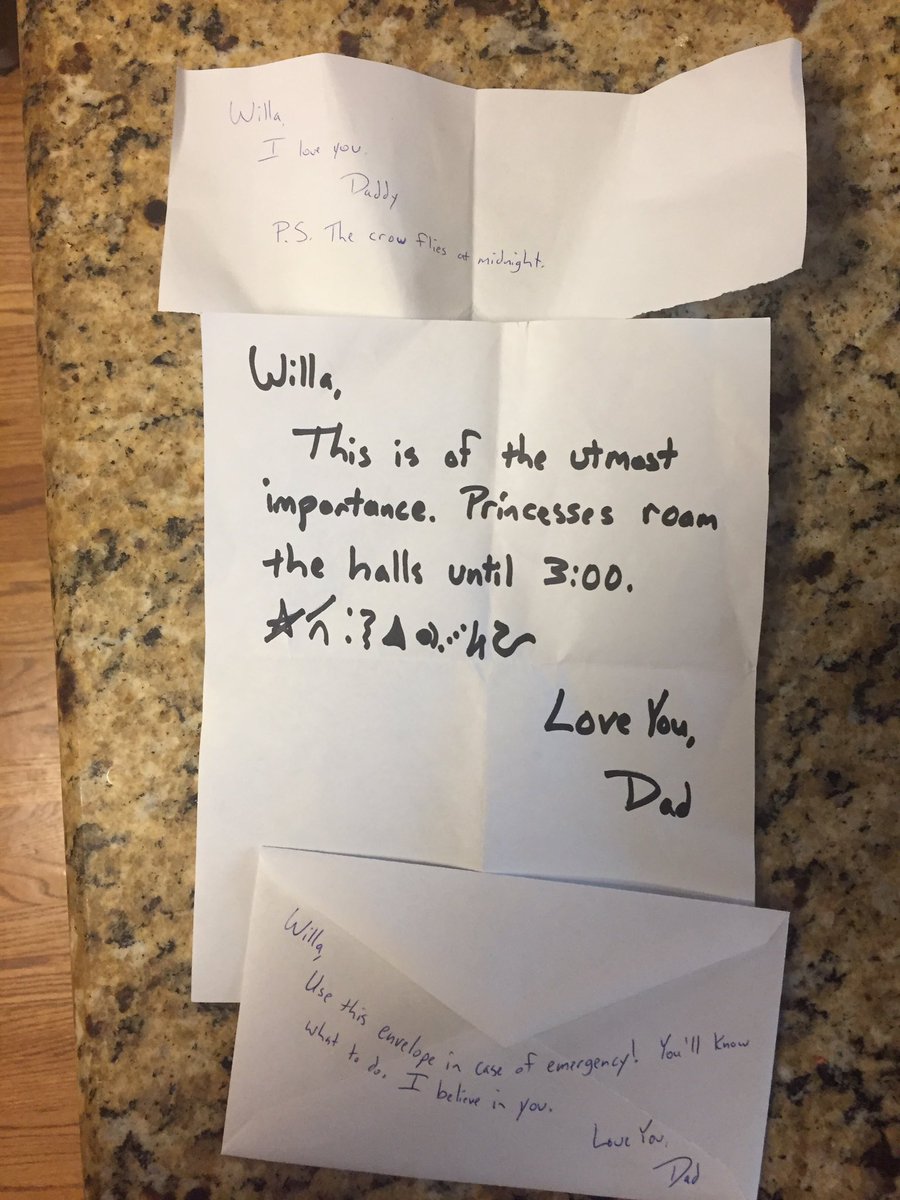 Willa,
I love you.
Daddy
P.S. The crow flies at midnight.
Willa,
This is of the utmost
importance. Princesses roam
the halls until 3:00.
Love You,
Dad
Willa,
Use this envelope in case of emergency! You'll know
what to do. I believe in you.
Love You,
Dad